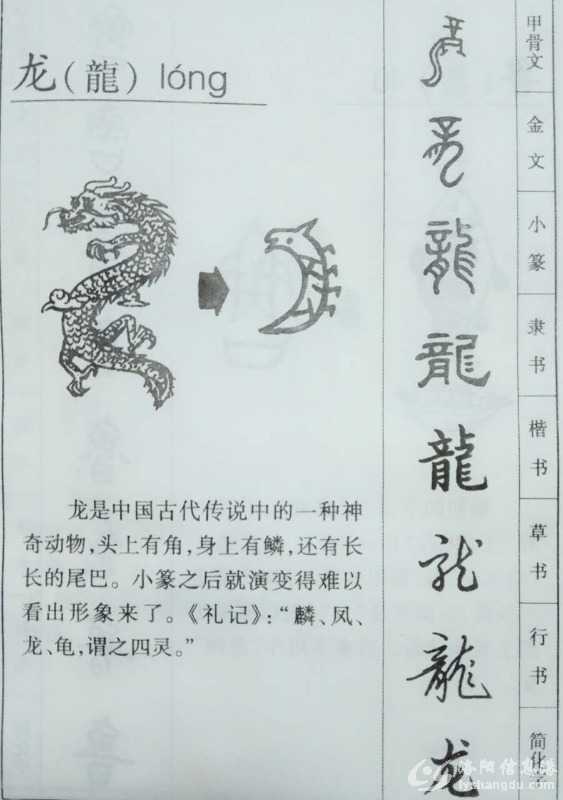 龙(龍) lóng
龙是中国古代传说中的一种神
奇动物,头上有角,身上有鳞,还有长
长的尾巴。小篆之后就演变得难以
看出形象来了。《礼记》:“麟、凤、
龙、龟,谓之四灵。”
龍 甲骨文
龍 金文
龍 小篆
龍 隶书
龍 楷书
龍 草书
龍 行书
龙 简化字
洛阳信息港
lyshangdu.com